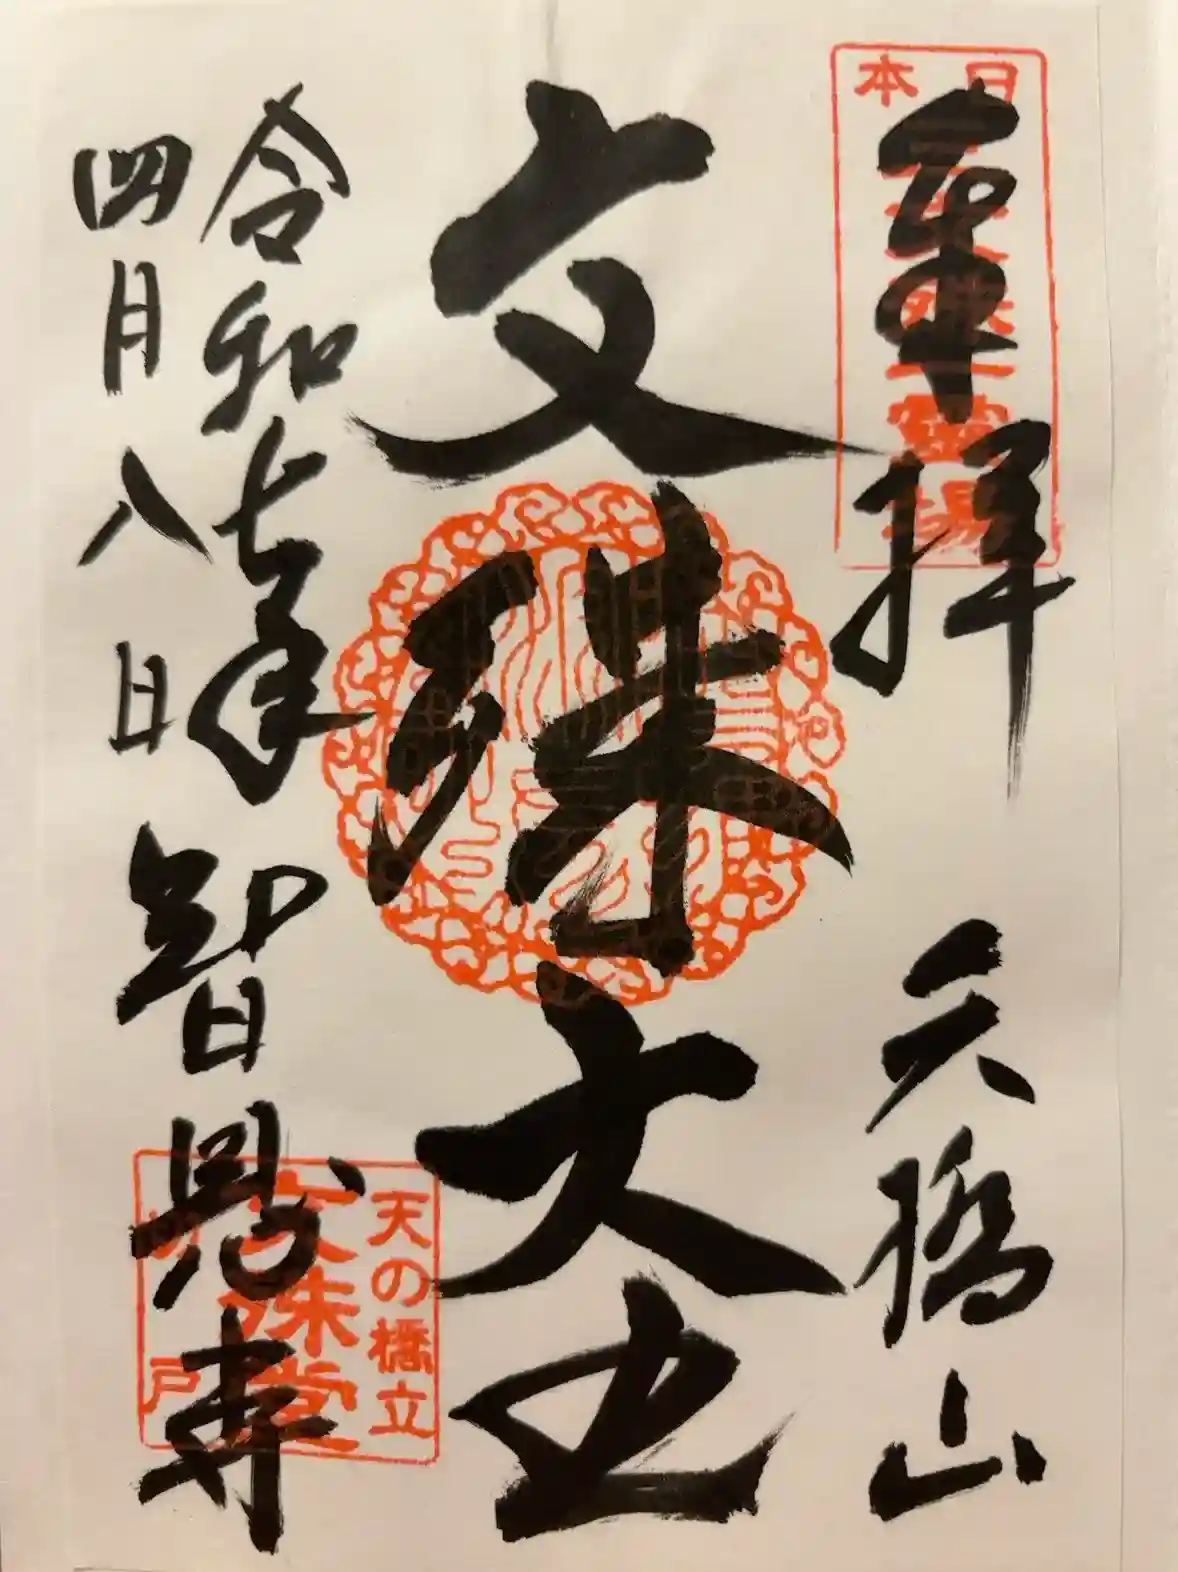 奉拝
天橋山
日本三文殊霊場
文殊大士
令和七年
四月八日
智恩寺
天の橋立
文殊堂